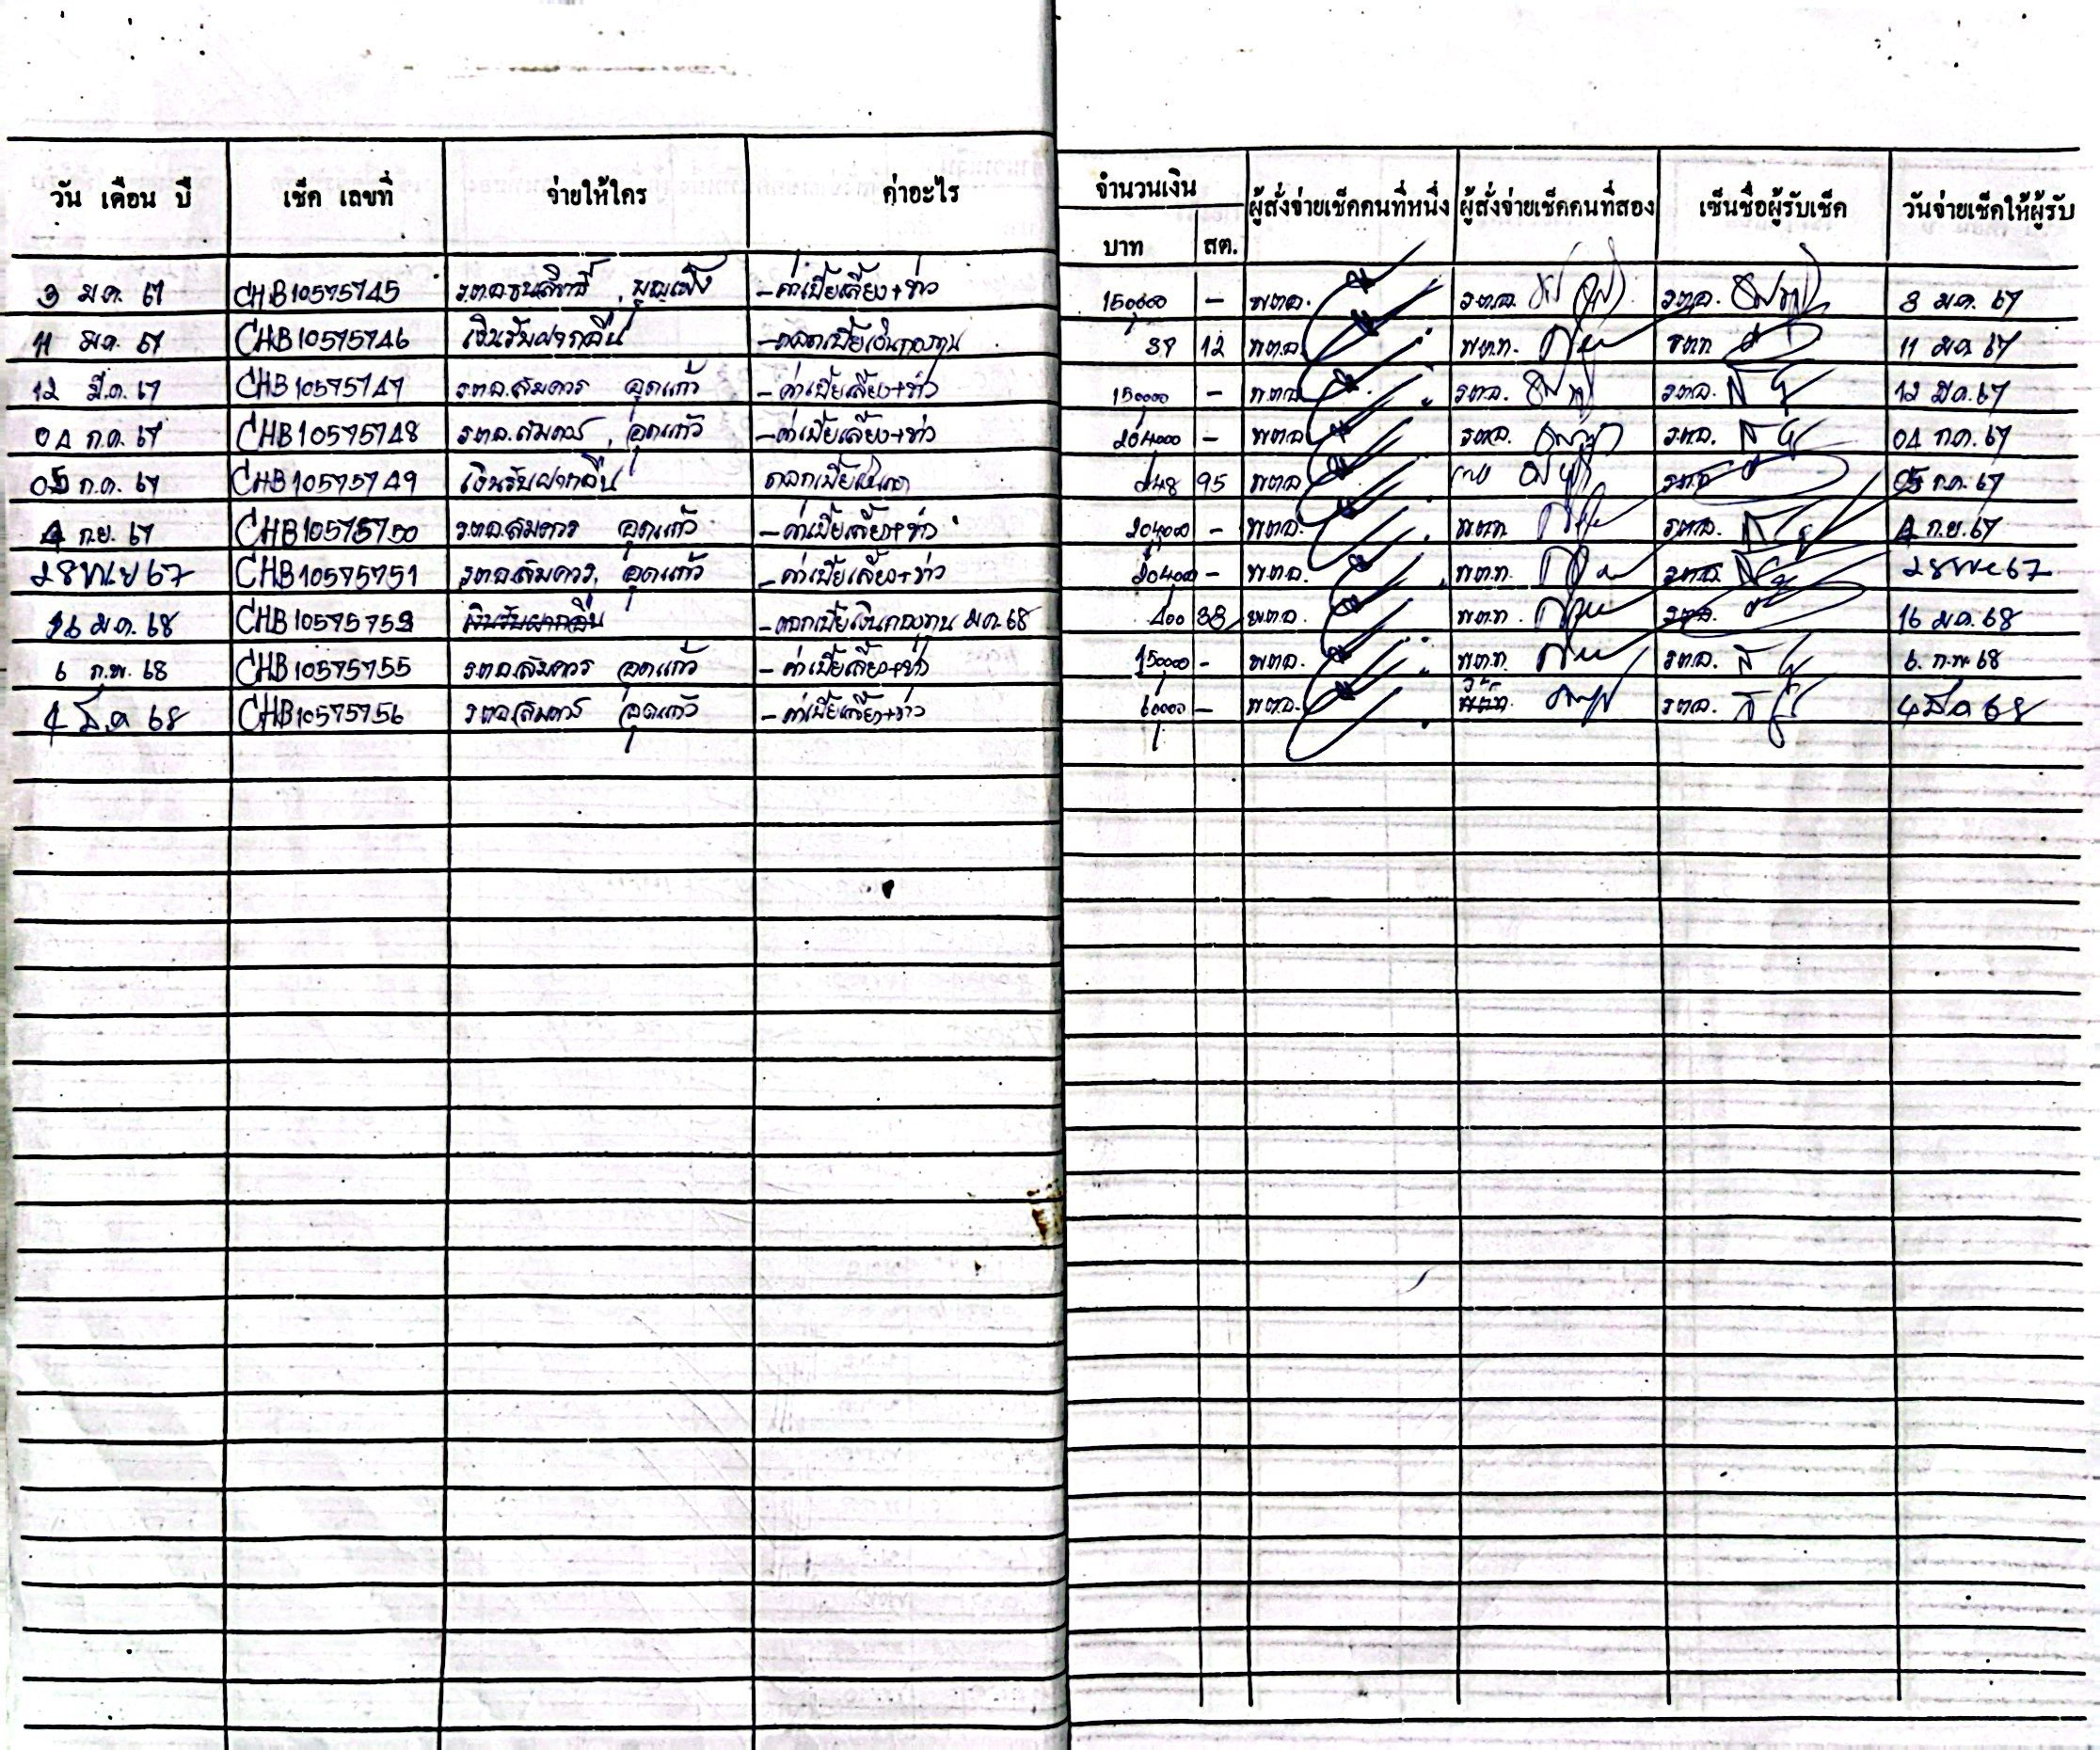 วัน เดือน ปี เช็ค เลขที่ จ่ายให้ใคร ค่าอะไร จำนวนเงิน ผู้สั่งจ่ายเช็คคนที่หนึ่ง ผู้สั่งจ่ายเช็คคนที่สอง เซ็นชื่อผู้รับเช็ค วันจ่ายเช็คให้ผู้รับ
บาท สต.
3 ม.ค. 67 CHB10575745 ร.ต.อ. - ค่าเบี้ยเลี้ยง+ข่าว 150000 - พ.ต.อ. ร.ต.อ. ร.ต.อ. 3 ม.ค. 67
11 ม.ค. 67 CHB10575746 เงินรับฝากอื่น - ดอกเบี้ยเงินกองทุน 37 12 พ.ต.อ. พ.ต.ท. 11 ม.ค. 67
12 มี.ค. 67 CHB10575747 ร.ต.อ.สมควร อุดแก้ว - ค่าเบี้ยเลี้ยง+ข่าว 150000 - พ.ต.อ. ร.ต.อ. ร.ต.อ. 12 มี.ค. 67
04 ก.ค. 67 CHB10575748 ร.ต.อ.สมควร อุดแก้ว - ค่าเบี้ยเลี้ยง+ข่าว 204000 - พ.ต.อ. ร.ต.อ. ร.ต.อ. 04 ก.ค. 67
05 ก.ค. 67 CHB10575749 เงินรับฝากอื่น ดอกเบี้ย 248 95 พ.ต.อ. 05 ก.ค. 67
4 ก.ย. 67 CHB10575750 ร.ต.อ.สมควร อุดแก้ว - ค่าเบี้ยเลี้ยง+ข่าว 204000 - พ.ต.อ. พ.ต.ท. ร.ต.อ. 4 ก.ย. 67
28 พ.ย 67 CHB10575751 ร.ต.อ.สมควร อุดแก้ว - ค่าเบี้ยเลี้ยง+ข่าว 20400 - พ.ต.อ. พ.ต.ท. 28 พ.ย 67
16 ม.ค. 68 CHB10575753 เงินรับฝากอื่น - ดอกเบี้ยเงินกองทุน ม.ค. 68 400 38 พ.ต.อ. พ.ต.ท. ร.ต.อ. 16 ม.ค. 68
6 ก.พ. 68 CHB10575755 ร.ต.อ.สมควร อุดแก้ว - ค่าเบี้ยเลี้ยง+ข่าว 150000 - พ.ต.อ. พ.ต.ท. ร.ต.อ. 6 ก.พ. 68
4 มี.ค 68 CHB10575756 ร.ต.อ.สมควร อุดแก้ว - ค่าเบี้ยเลี้ยง+ข่าว 60000 - พ.ต.อ. ร.ต.อ. 4 มี.ค 68